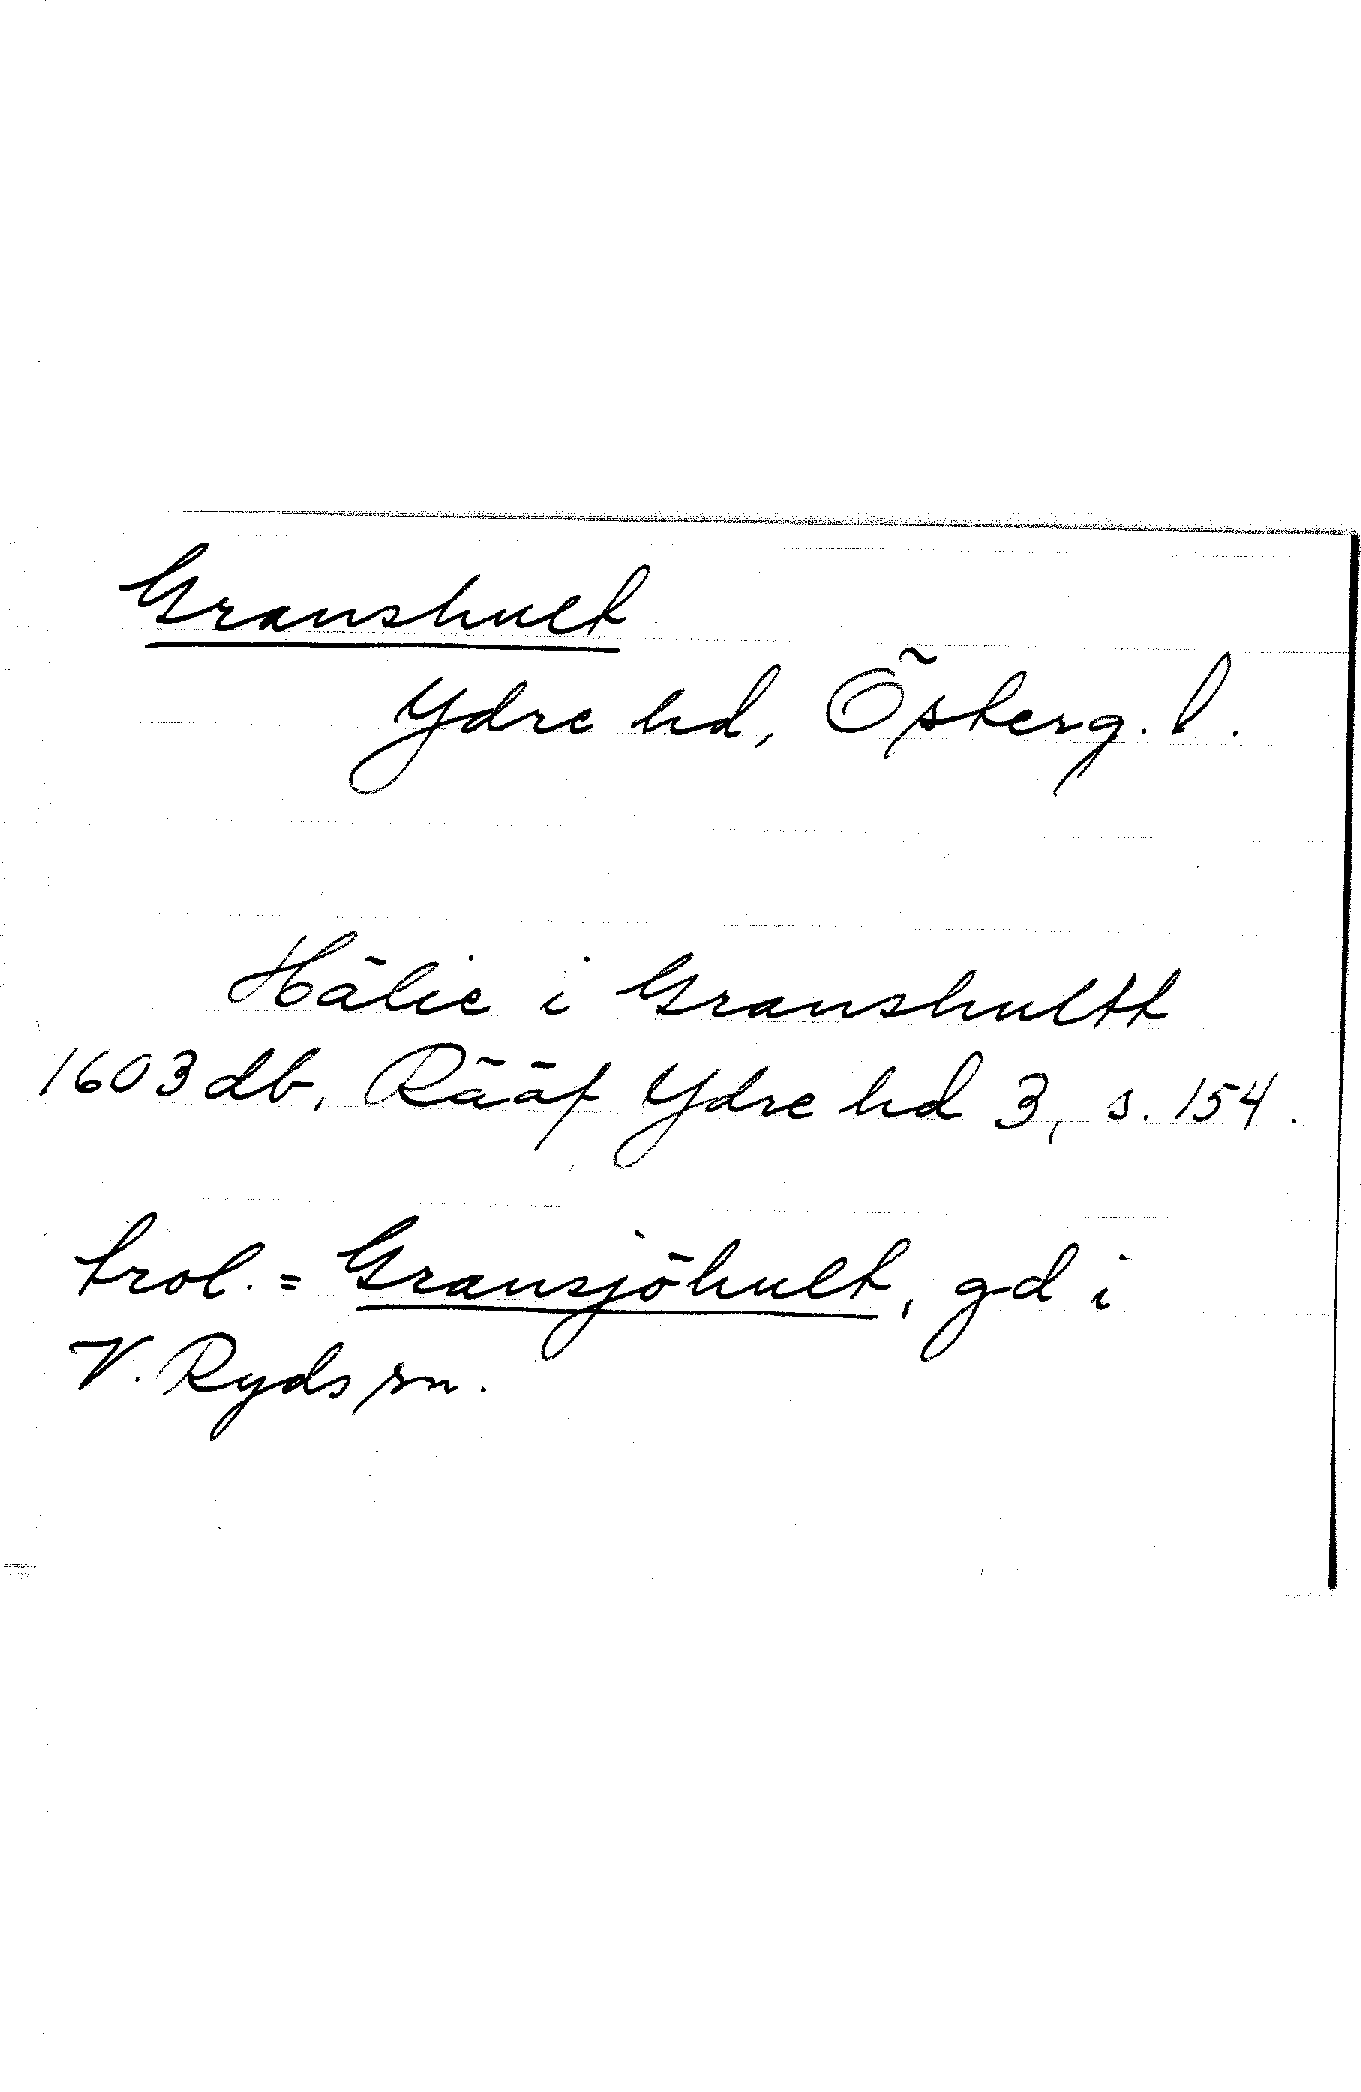 Granshult
Ydre hd, Österg. l.
Hälie i Granshultt
1603 db, Rääf Ydre hd 3, s. 154.
trol. = Gransjöhult, gd i
V. Ryds sn.